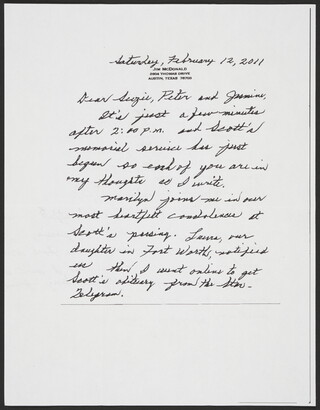 Saturday, February 12, 2011
JIM McDONALD
2904 THOMAS DRIVE
AUSTIN, TEXAS
Dear Suzie, Peter and Jasmine,
It's just a few minutes
after 2:00 P.M. and Scott's
memorial service has just
begun so each of you are in
my thoughts as I write.
Marilyn joins me in our
most heartfelt condolences at
Scott's passing. Laura, our
daughter in Fort Worth, notified
us then I went online to get
Scott's obituary from the Star-
Telegram.